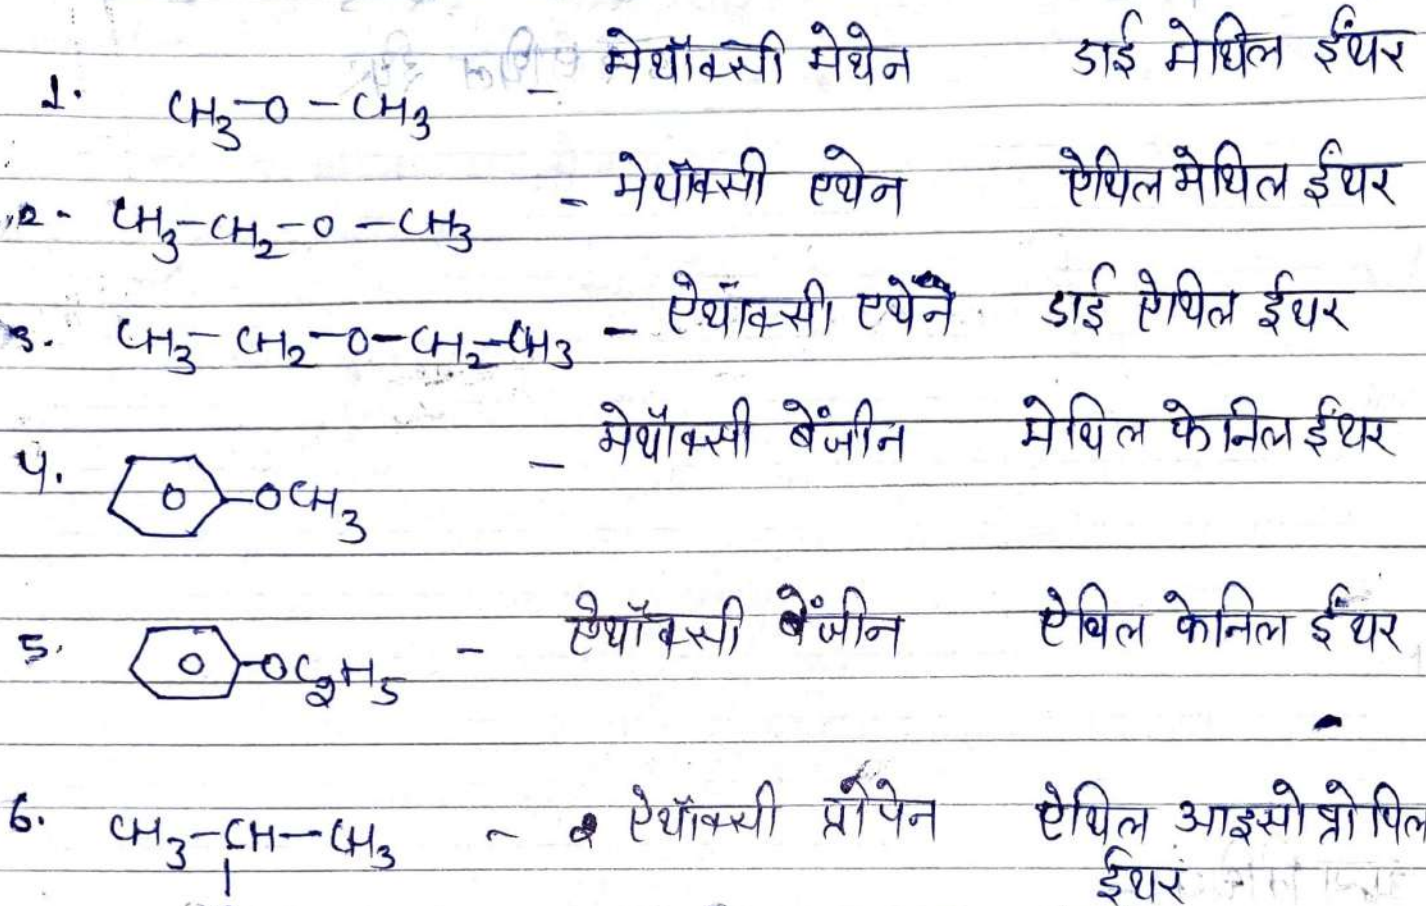 1. CH3-O-CH3 - मेथॉक्सी मेथेन डाई मेथिल ईथर
2. CH3-CH2-O-CH3 - मेथॉक्सी एथेन ऐथिल मेथिल ईथर
3. CH3-CH2-O-CH2-CH3 - ऐथॉक्सी एथेन डाई ऐथिल ईथर
4. -OCH3 - मेथॉक्सी बेंजीन मेथिल फेनिल ईथर
5. -OC2H5 - ऐथॉक्सी बेंजीन ऐथिल फेनिल ईथर
6. CH3-CH-CH3 - 2 ऐथॉक्सी प्रोपेन ऐथिल आइसो प्रोपिल
ईथर